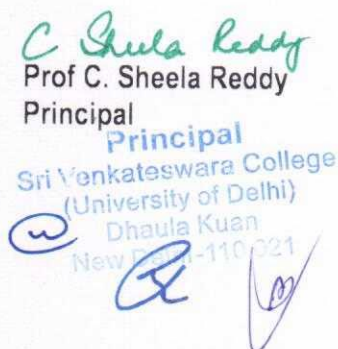 C Sheela Reddy
Prof C. Sheela Reddy
Principal
Principal
Sri Venkateswara College
(University of Delhi)
Dhaula Kuan
New Delhi-110 021